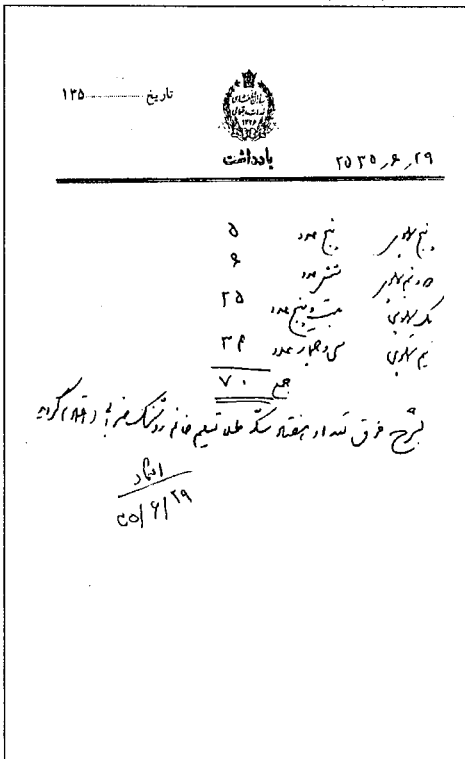 تاریخ ............ ۱۳۵
۱۳۲۶
یادداشت
۲۵۳۵٫۶٫۲۹
پنج پهلوی پنج عدد ۵
دو نیم پهلوی شش عدد ۶
یک پهلوی بیست و پنج عدد ۲۵
نیم پهلوی سی و چهار عدد ۳۴
جمع ۷۰
بشرح فوق تعداد هفتاد سکه طلا تسلیم خانم گردید
۳۵/۶/۲۹